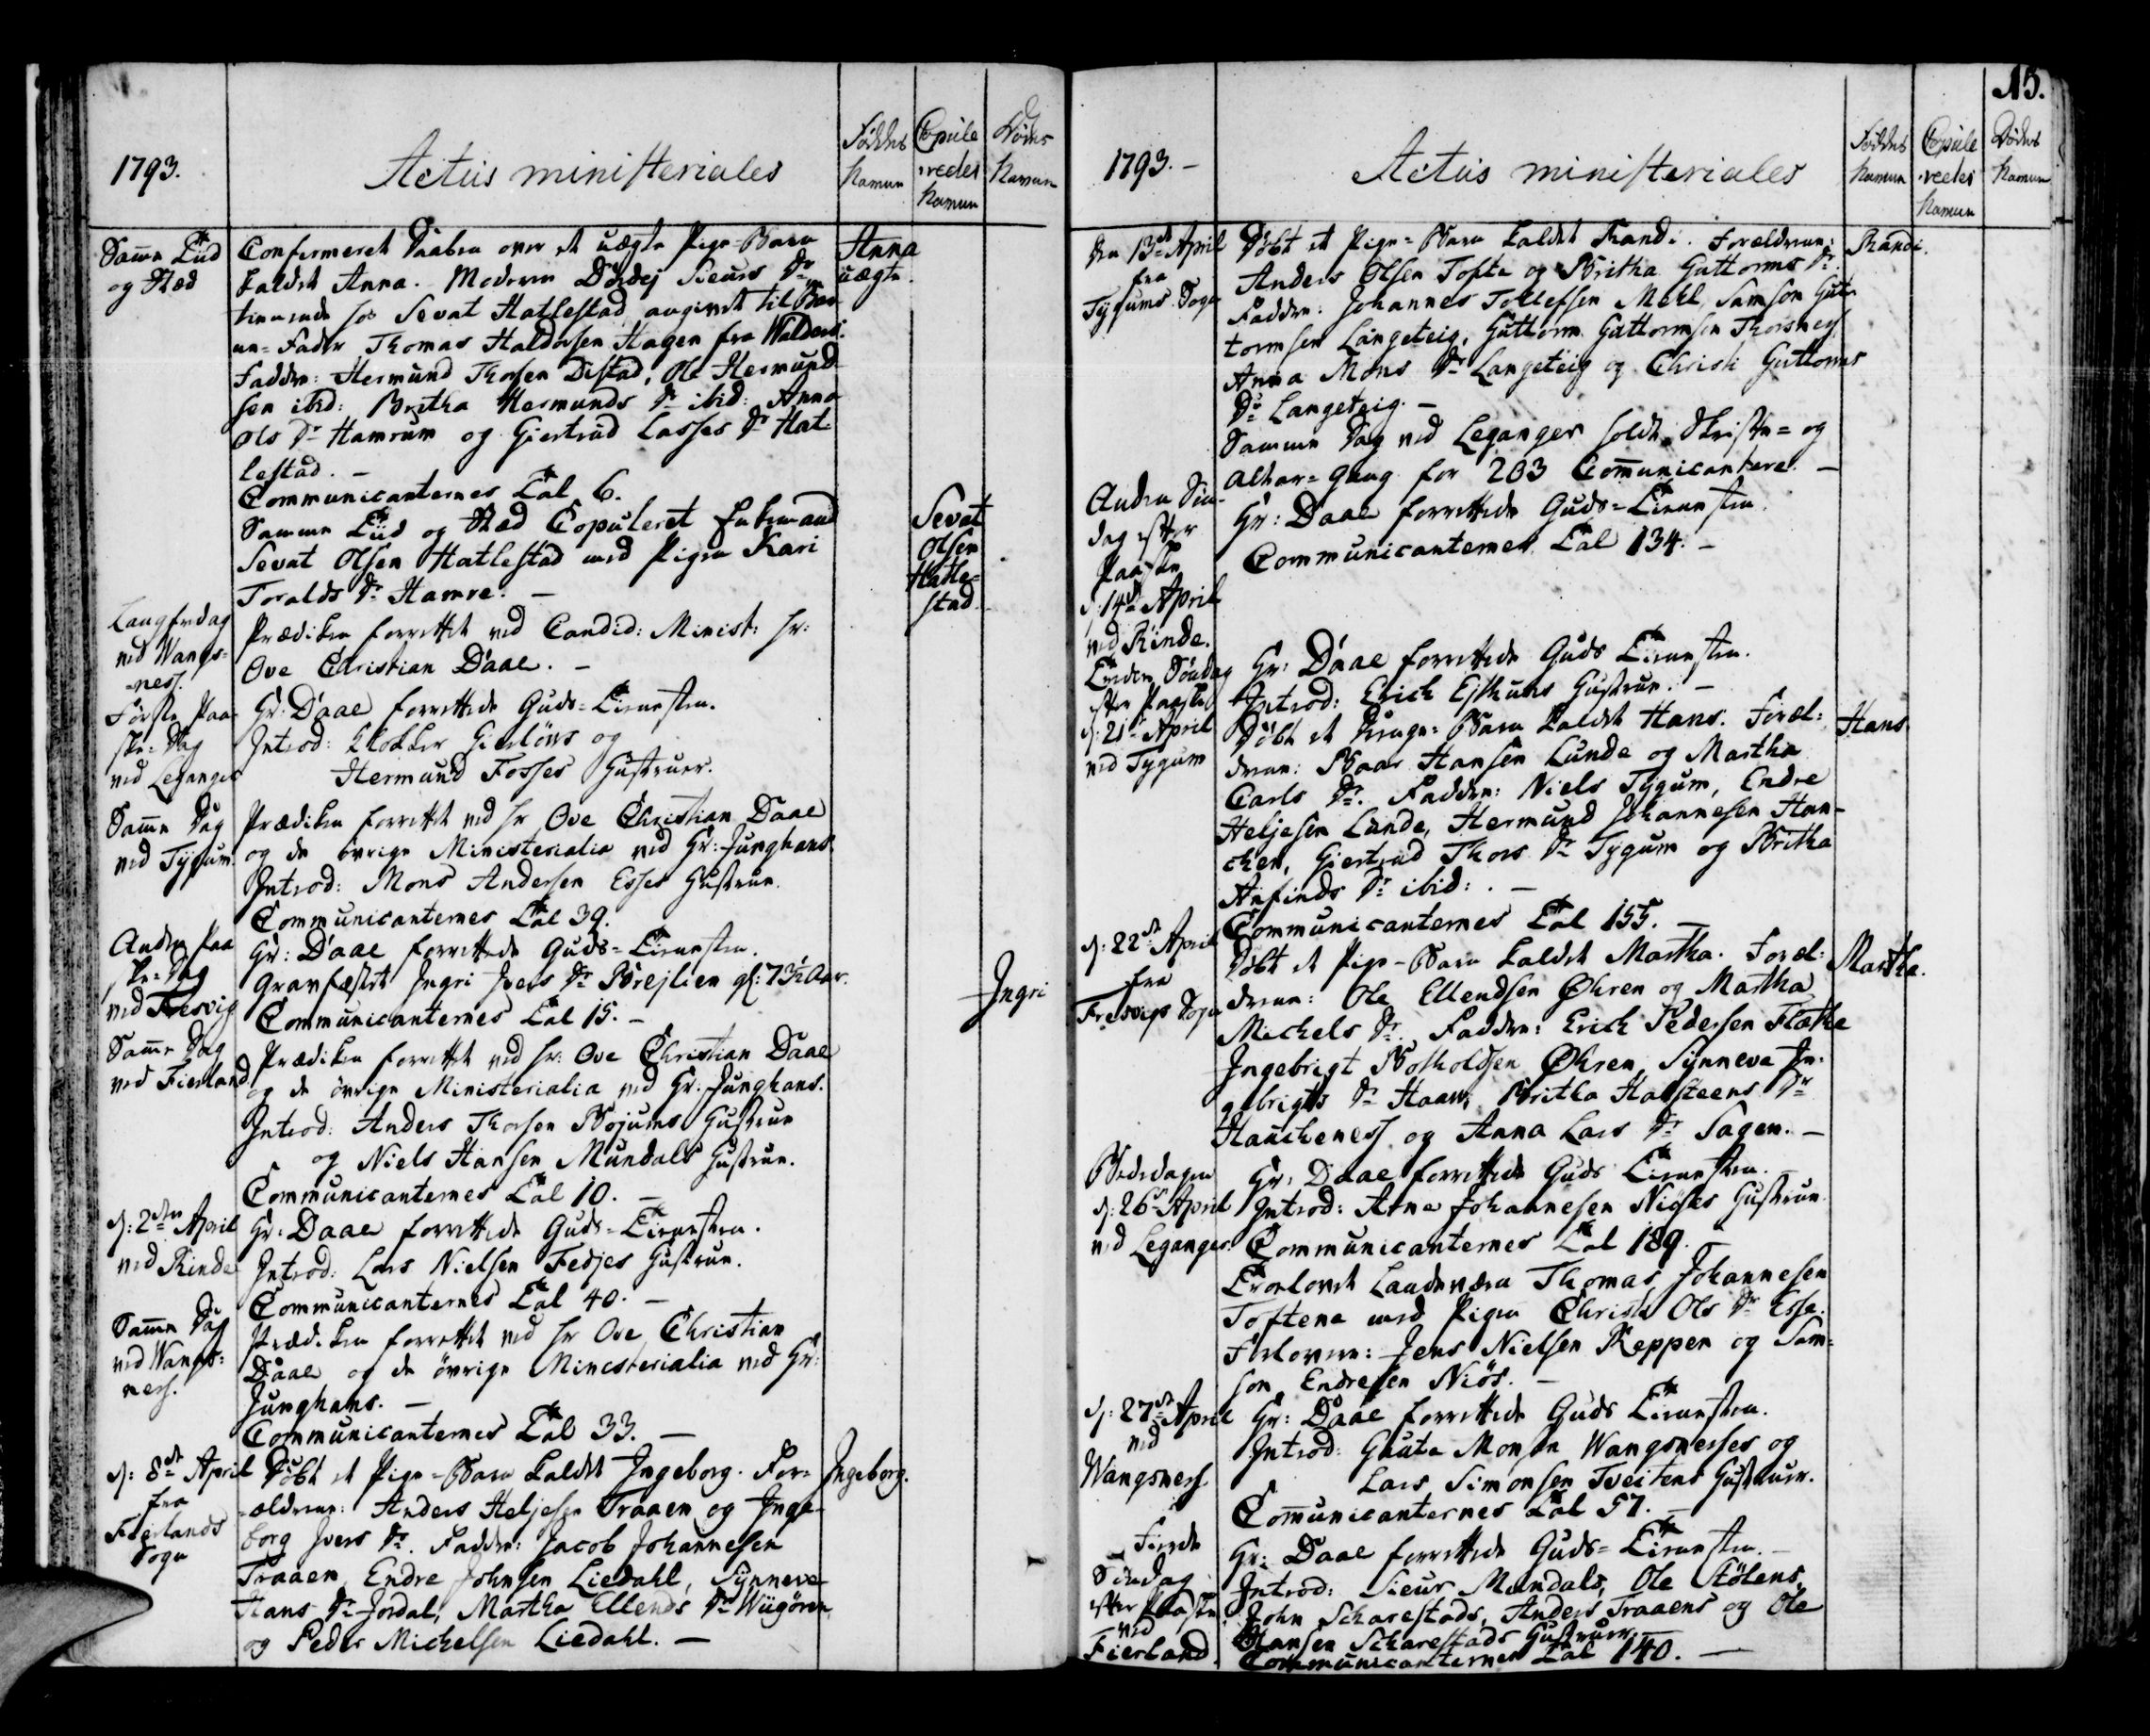 1793.
Actus ministeriales
Föddes Navne
Copulevedes Navne
Dödes Navne
Samme Tiid
og Stæd
Confermeret Daaben over et uægte Pige-Barn
kaldet Anna. Moderen Dördej Sieurs Dr
tienende hos Sevat Hatlestad, angivet til Bar
ne-Fader Thomas Haldorsen Hagen fra Walders.
Faddere: Hermund Thorsen Distad, Ole Hermund
sen ibid: Britha Hermunds Dr ibid: Anna
Ols Dr Hamrum og Giertrud Lasses Dr Hat
lestad. —
Anna
uægte.
Communicanternes Tal 6.
Samme Tiid og Stæd Copuleret Enkemand
Sevat Olsen Hatlestad med Pigen Kari
Toralds Dr Hamre. —
Sevat
Olsen
Hatle-
stad
Langfredag
ved Wangs-
-ness.
Prædiken forrettet ved Candid: Minist: Hr:
Ove Christian Daae. —
Første Paa-
ske-Dag
ved Leganger
Hr: Daae forrettede Guds-Tienesten.
Introd: Klokker Gierlöws og
Hermund Fosses Hustruer.
Samme Dag
ved Tygum.
Prædiken forrettet ved Hr Ove Christian Daae
og de övrige Ministerialia ved Hr: Junghans.
Introd: Mons Andersen Esses Hustrue.
Communicanternes Tal 39.
Anden Paa
ske-Dag
ved Fresvig
Hr: Daae forrettede Guds-Tienesten.
Gravfæstet Ingri Ivers Dr Brejlien gl: 73½ Aar.
Communicanternes Tal 15. —
Ingri
Samme Dag
ved Fierland.
Prædiken forrettet ved Hr: Ove Christian Daae
og de övrige Ministerialia ved Hr: Junghans.
Introd: Anders Thorsen Bojums Hustrue
og Niels Hansen Mundals Hustrue.
Communicanternes Tal 10. —
d: 2den April
ved Rinde
Hr: Daae forrettede Guds-Tienesten.
Introd: Lars Nielsen Fedjes Hustrue.
Communicanternes Tal 40. —
Samme Dag
ved Wangs-
ness.
Prædiken forrettet ved Hr Ove Christian
Daae, og de övrige Ministerialia ved Hr:
Junghans. —
Communicanternes Tal 33. —
d: 8de April
fra
Fierlands
Sogn
Döbt et Pige-Barn kaldet Ingeborg. For-
ældrene: Anders Heljesen Traaen og Inge-
borg Ivers Dr. Faddere: Jacob Johannesen
Traaen, Endre Johnsen Liedahl, Synneve
Hans Dr Jordal, Martha Ellends Dr Wiigören,
og Peder Michelsen Liedahl. —
Ingeborg.
15.
1793. —
Actus ministeriales
Föddes Navne
Copulevedes Navne
Dödes Navne
den 13de April
fra
Tygums Sogn
Döbt et Pige-Barn kaldet Randi. Forældrene:
Anders Olsen Tofte og Britha Guttorms Dr.
Faddere: Johannes Tollefsen Mehl, Samson Gut-
tormsen Langeteig, Guttorm Guttormsen Thorsness
Anna Mons Dr Langeteig og Christi Guttorms
Dr Langeteig. —
Randi.
Samme Dag ved Leganger holdt Skrifte- og
Altar-Gang for 203 Communicantere. —
Anden Sön-
dag efter
Paaske
d: 14de April
ved Rinde.
Hr: Daae forrettede Guds-Tienesten.
Communicanternes Tal 134. —
Tredie Söndag
efter Paaske
d: 21de April
ved Tygum
Hr: Daae forrettede Guds Tienesten.
Introd: Erich Eithuns Hustrue. —
Döbt et Drenge-Barn kaldet Hans. Foræl-
drene: Baar Hansen Lunde og Martha
Carls Dr. Faddere: Niels Tygum, Endre
Heljesen Lunde, Hermund Johannesen Han-
chen, Giertrud Thors Dr Tygum og Britha
Anfinds Dr ibid: . —
Communicanternes Tal 155. —
Hans.
d: 22de April
fra
Fresvigs Sogn
Döbt et Pige-Barn kaldet Martha. Foræl-
drene: Ole Ellendsen Öhren og Martha
Michels Dr. Faddere: Erich Pedersen Flæthe
Ingebrigt Botholdsen Öhren, Synneva In-
gebrigts Dr Haaw, Britha Halsteens Dr
Hauscheness og Anna Lars Dr Sagen. —
Martha.
Bededagen
d: 26de April
ved Leganger.
Hr: Daae forrettede Guds Tienesten. —
Introd: Arne Johannesen Nises Hustrue
Communicanternes Tal 189. —
Trolovet Landeværn Thomas Johannesen
Toftene med Pigen Christi Ols Dr Esse.
Forlovere: Jens Nielsen Reppen og Sam-
son Endresen Niös. —
d: 27de April
ved
Wangsness
Hr: Daae forrettede Guds Tienesten.
Introd: Gaute Monsen Wangsnesses og
Lars Simonsen Tveitens Hustruer.
Communicanternes Tal 57. —
Fierde
Söndag
efter Paaske
ved
Fierland.
Hr: Daae forrettede Guds-Tienesten. —
Introd: Sieur Mundals, Ole Stölens,
John Scharestads, Anders Traaens og Ole
Hansen Scharestads Hustruer. —
Communicanternes Tal 140. —